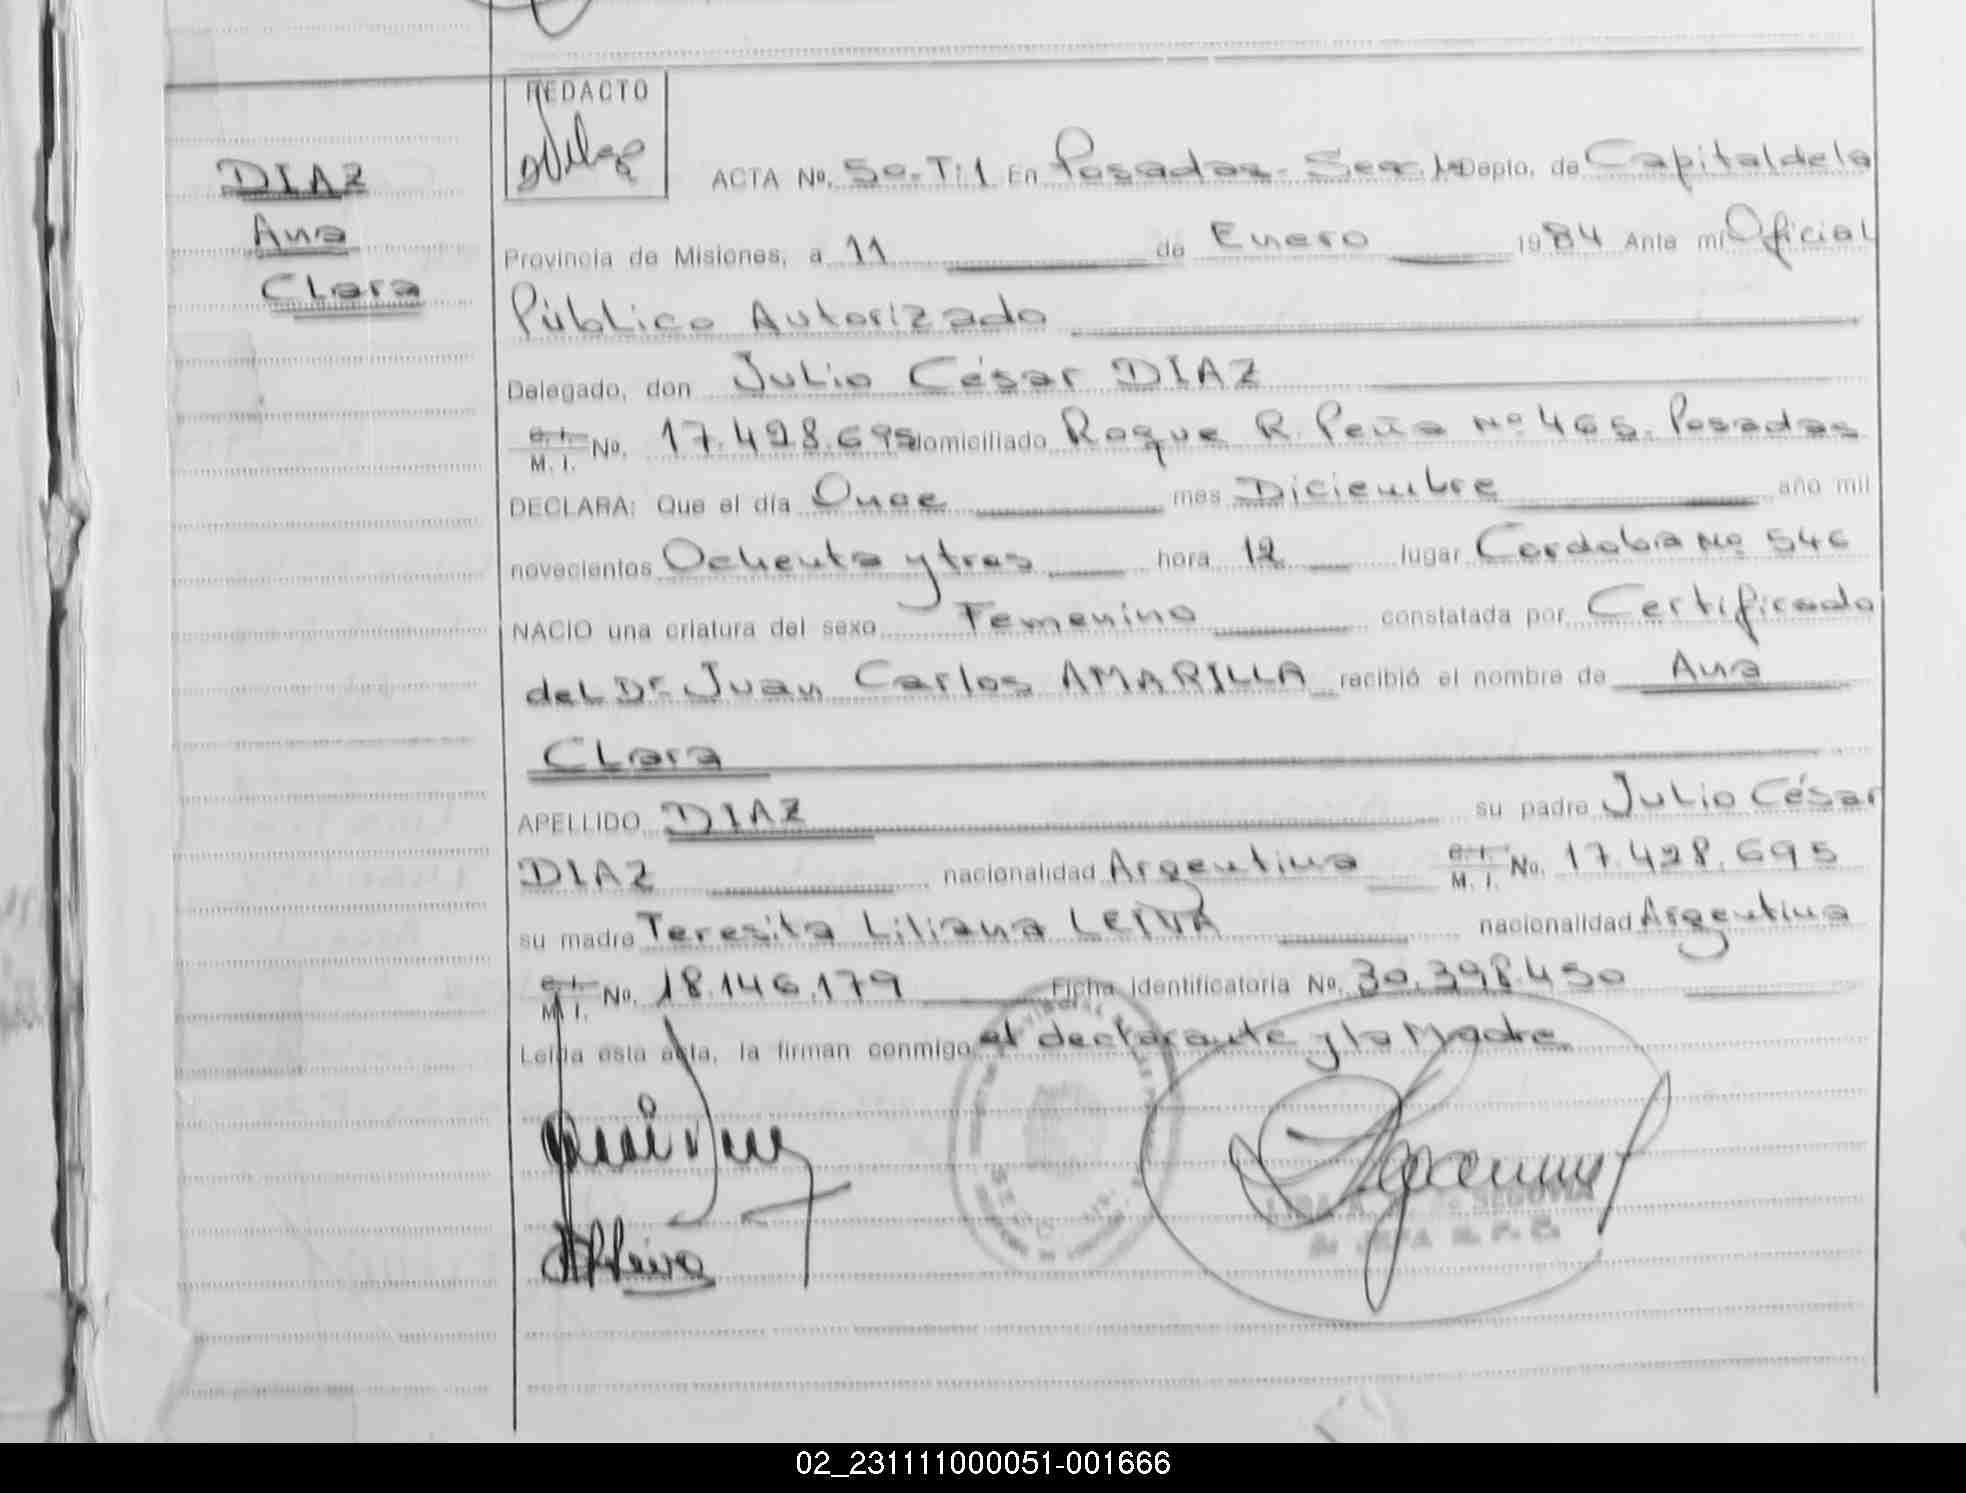 REDACTO
DIAZ
Ana
Clara
ACTA No. 50-T:1 En Posadas- Sec. Depto. de Capital de la
Provincia de Misiones, a 11 de Enero 1984 Ante mi Oficial
Público Autorizado
Delegado, don Julio César DIAZ
C. I. M. I. No. 17.428.695 domiciliado Roque R. Peña Nº 465. Posadas
DECLARA: Que el día Once mes Diciembre año mil
novecientos Ochenta y tres hora 12 lugar Cordoba Nº 546
NACIO una criatura del sexo Femenino constatada por Certificado
del Dr. Juan Carlos AMARILLA recibió el nombre de Ana
Clara
APELLIDO DIAZ su padre Julio César
DIAZ nacionalidad Argentina C. I. M. I. No. 17.428.695
su madre Teresita Liliana LEIVA nacionalidad Argentina
C. I. M. I. No. 18.146.179 Ficha identificatoria No. 30.398.450
Leída esta acta, la firman conmigo el declarante y la Madre
SEGOVIA
JEFA R. P. C.
02_231111000051-001666